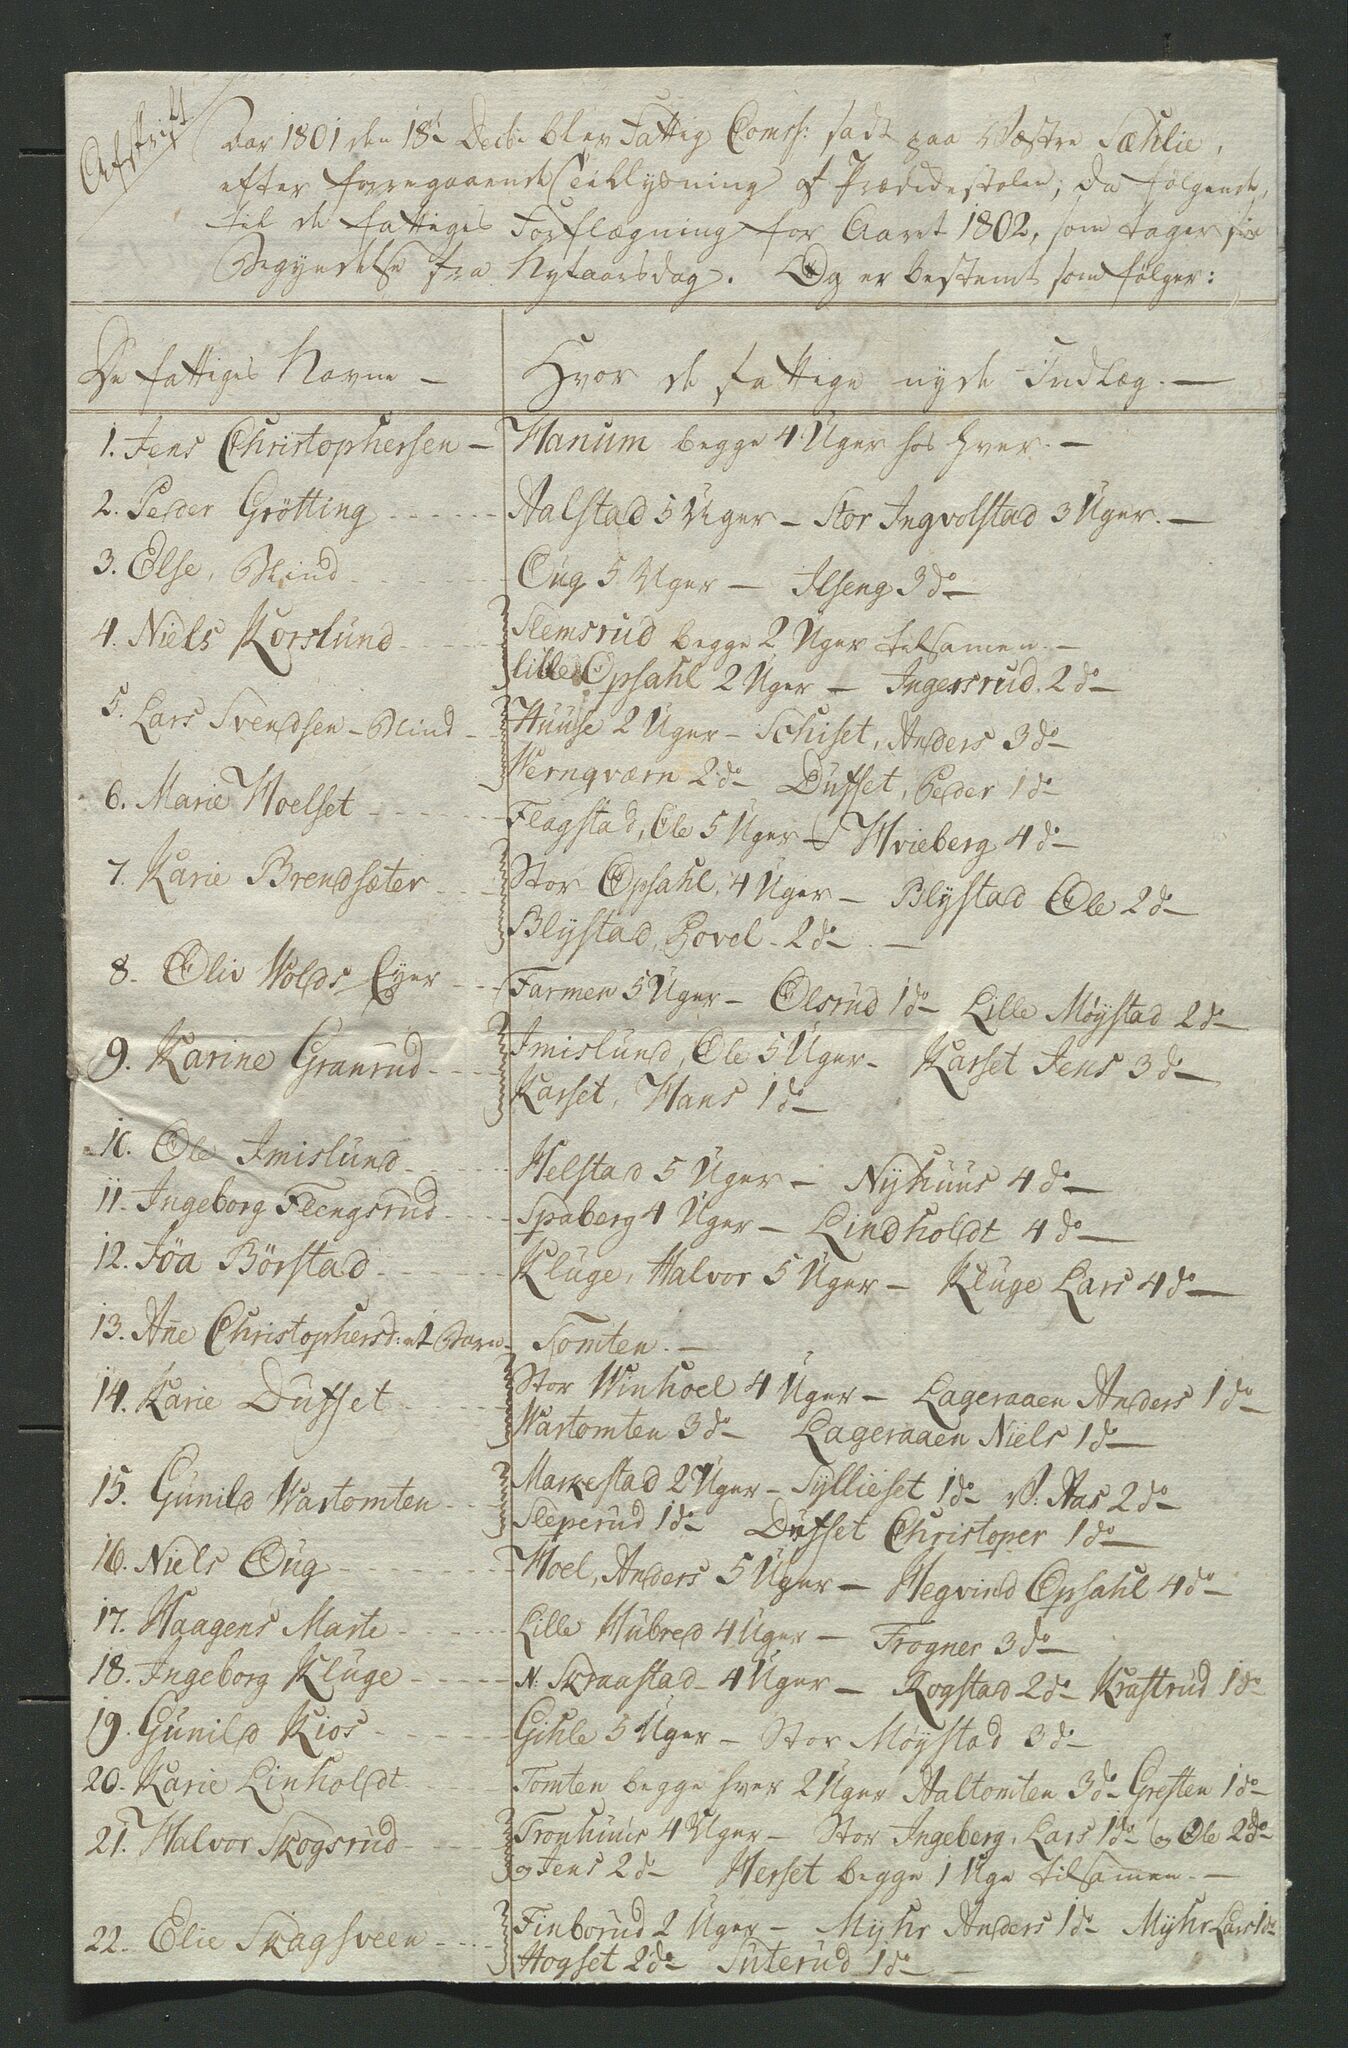 Afskrift
Aar 1801 den 18de Decbr. blev Fattig Comss: sadt paa Væstre Sæhlie,
efter forregaaende Tillysning af Prædikestolen; da følgende,
til de fattiges Forflægning for Aaret 1802, som tager sin
Begyndelse fra Nytaarsdag. Og er bestemt som følger:
De fattiges Navne — Hvor de fattige nyde Indlæg. —
1. Jens Christophersen — Hanum begge 4 Uger hos hver. —
2. Peder Grötting - - - - Aalstad 5 Uger — Stor Ingvolstad 3 Uger. —
3. Else, Blind - - - - Oug 5 Uger — Ilseng 3 do —
4. Niels Korslund - - - - Slemsrud begge 2 Uger tilsamen. —
lille Opsahl 2 Uger — Ingersrud. 2 do —
5. Lars Svendsen - Blind - - Huuse 2 Uger — Schiset, Anders 3 do —
Hernqværn 2 do — Dufset, Peder 1 do —
6. Marie Hoelset - - - - Flagstad, Ole 5 Uger — Hvieberg 4 do —
7. Karie Brendsæter - - - Stor Opsahl, 4 Uger — Blystad Ole 2 do —
Blystad, Hovel - 2 do — . —
8. Oliv Wolds Eyer - - - Farmen 5 Uger — Olsrud 1 do — Lille Møystad 2 do —
9. Karine Granrud - - - - Imislund, Ole 5 Uger - Karset Jens 3 do —
Karset, Hans 1 do —
10. Ole Imislund - - - - Helstad 5 Uger — Nyhuus 4 do —
11. Ingeborg Flengsrud - - - Spaberg 4 Uger — Lindholdt 4 do —
12. Föa Börstad - - - - Kluge, Halvor 5 Uger — Kluge Lars 4 do —
13. Añe Christophersd: et Barn - Tomten. —
14. Karie Dufset - - - - Stor Winhoel 4 Uger — Lageraaen Anders 1 do —
Wastomten 3 do — Lageraaen Niels 1 do —
15. Gunild Wastomten - - - Markestad 2 Uger — Syllieset 1 do — V: Aas 2 do —
Sleperud 1 do — Dufset Christoper 1 do —
16. Niels Oug - - - - Hoel, Anders 5 Uger — Hegvind Opsahl 4 do —
17. Haagens Marte - - - - Lille Hubred 4 Uger — Frogner 3 do —
18. Ingeborg Kluge - - - - N: Skraastad — 4 Uger — Rogstad 2 do — Krastrud 1 do —
19. Gunild Kios - - - - Gihle 5 Uger — Stor Møystad 3 do —
20. Karie Linholdt - - - - Tomten begge hver 2 Uger Aaltomten 3 do — Gresten 1 do —
21. Halvor Skogsrud - - - - Tronhuus 4 Uger — Stor Ingeberg, Lars 1 do — og Ole 2 do —
og Jens 2 do — Herset begge 1 Uge tilsamen. —
22. Elie Skagsveen - - - - Finborud 2 Uger — Myhr Anders 1 do — Myhr Lars 1 do
Hogset 2 do — Suterud 1 do —